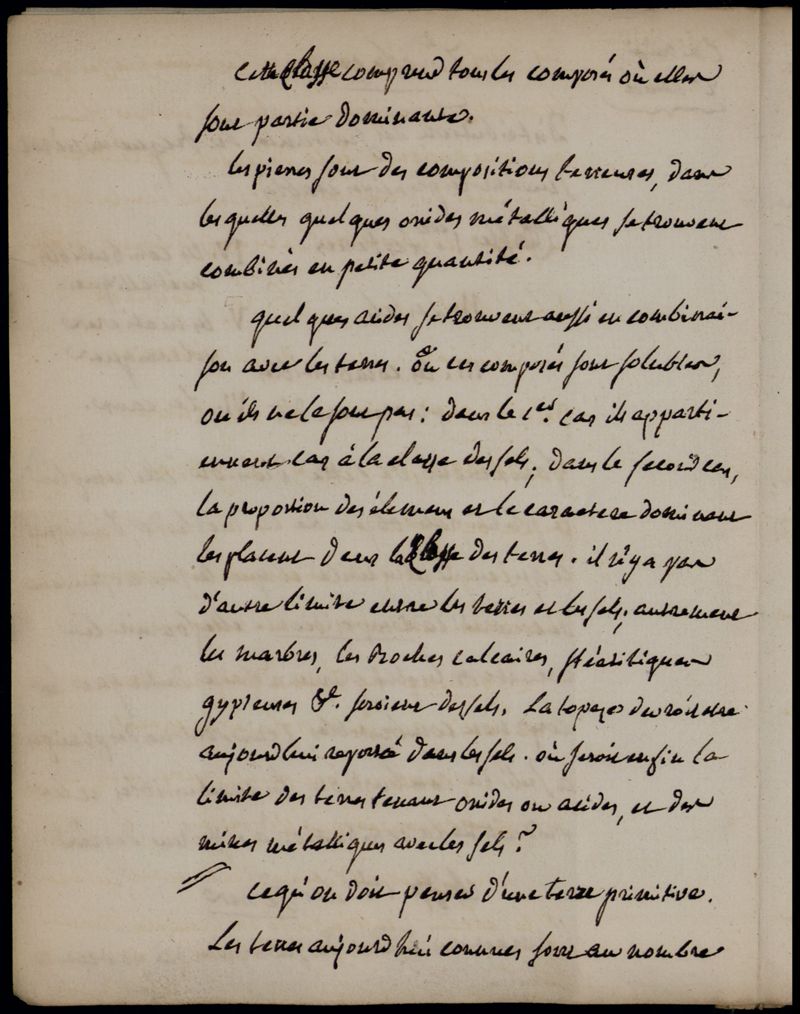 cette Classe comprend tous les composés où elles
sont partie dominante.
les pierres sont des compositions terreuses, dans
les quelles quelques oxides métalliques se trouvent
combinés en petite quantité.
quelques acides se trouvent aussi en combinai-
son avec les terres. Ou ces composés sont solubles,
ou ils ne le sont pas: dans le 1er. cas ils apparti-
ennent à la classe des sels; dans le second cas,
la proportion des élemens et le caractere dominant
les placent dans la Classe des terres. il n'y a pas
d'autre limite entre les terres et les sels; autrement
les marbres, les Roches calcaires, stéatitiques
gypseuses &c. seroient des sels. La topaze devroit etre
aujourd'hui reporté dans les sels. où seroit enfin la
limite des terres tenant oxides ou acides, et des
mines métalliques avec les sels?
ce qu'on doit penser d'une terre primitive.
Les terres aujourd'hui connues sont au nombre